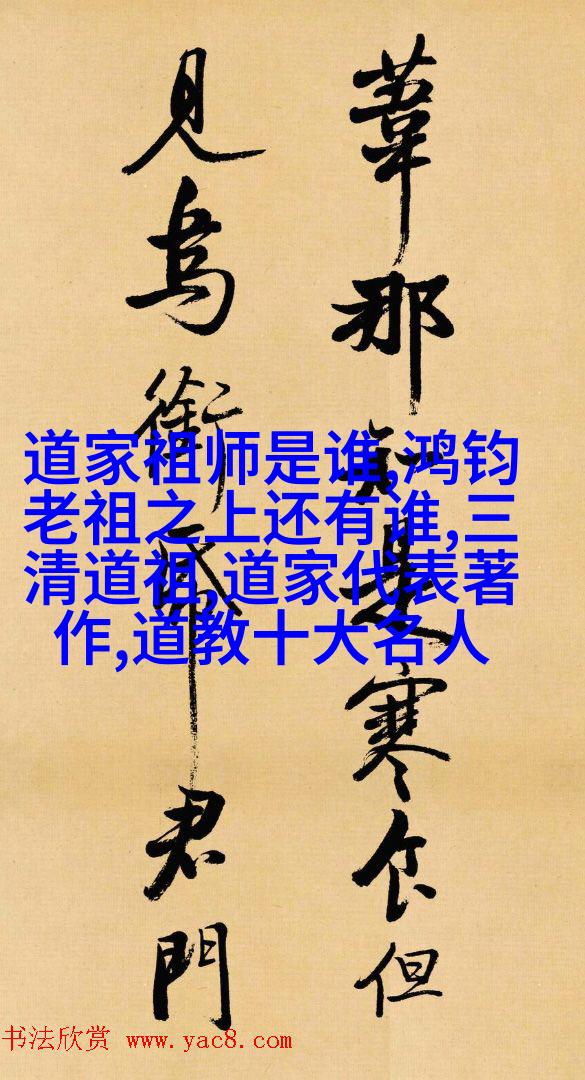 葦那知是寒食但
見烏銜帋君門
道家祖师是谁,鸿钧
老祖之上还有谁,三
清道祖,道家代表著
作,道教十大名人
书法欣赏 www.yac8.com